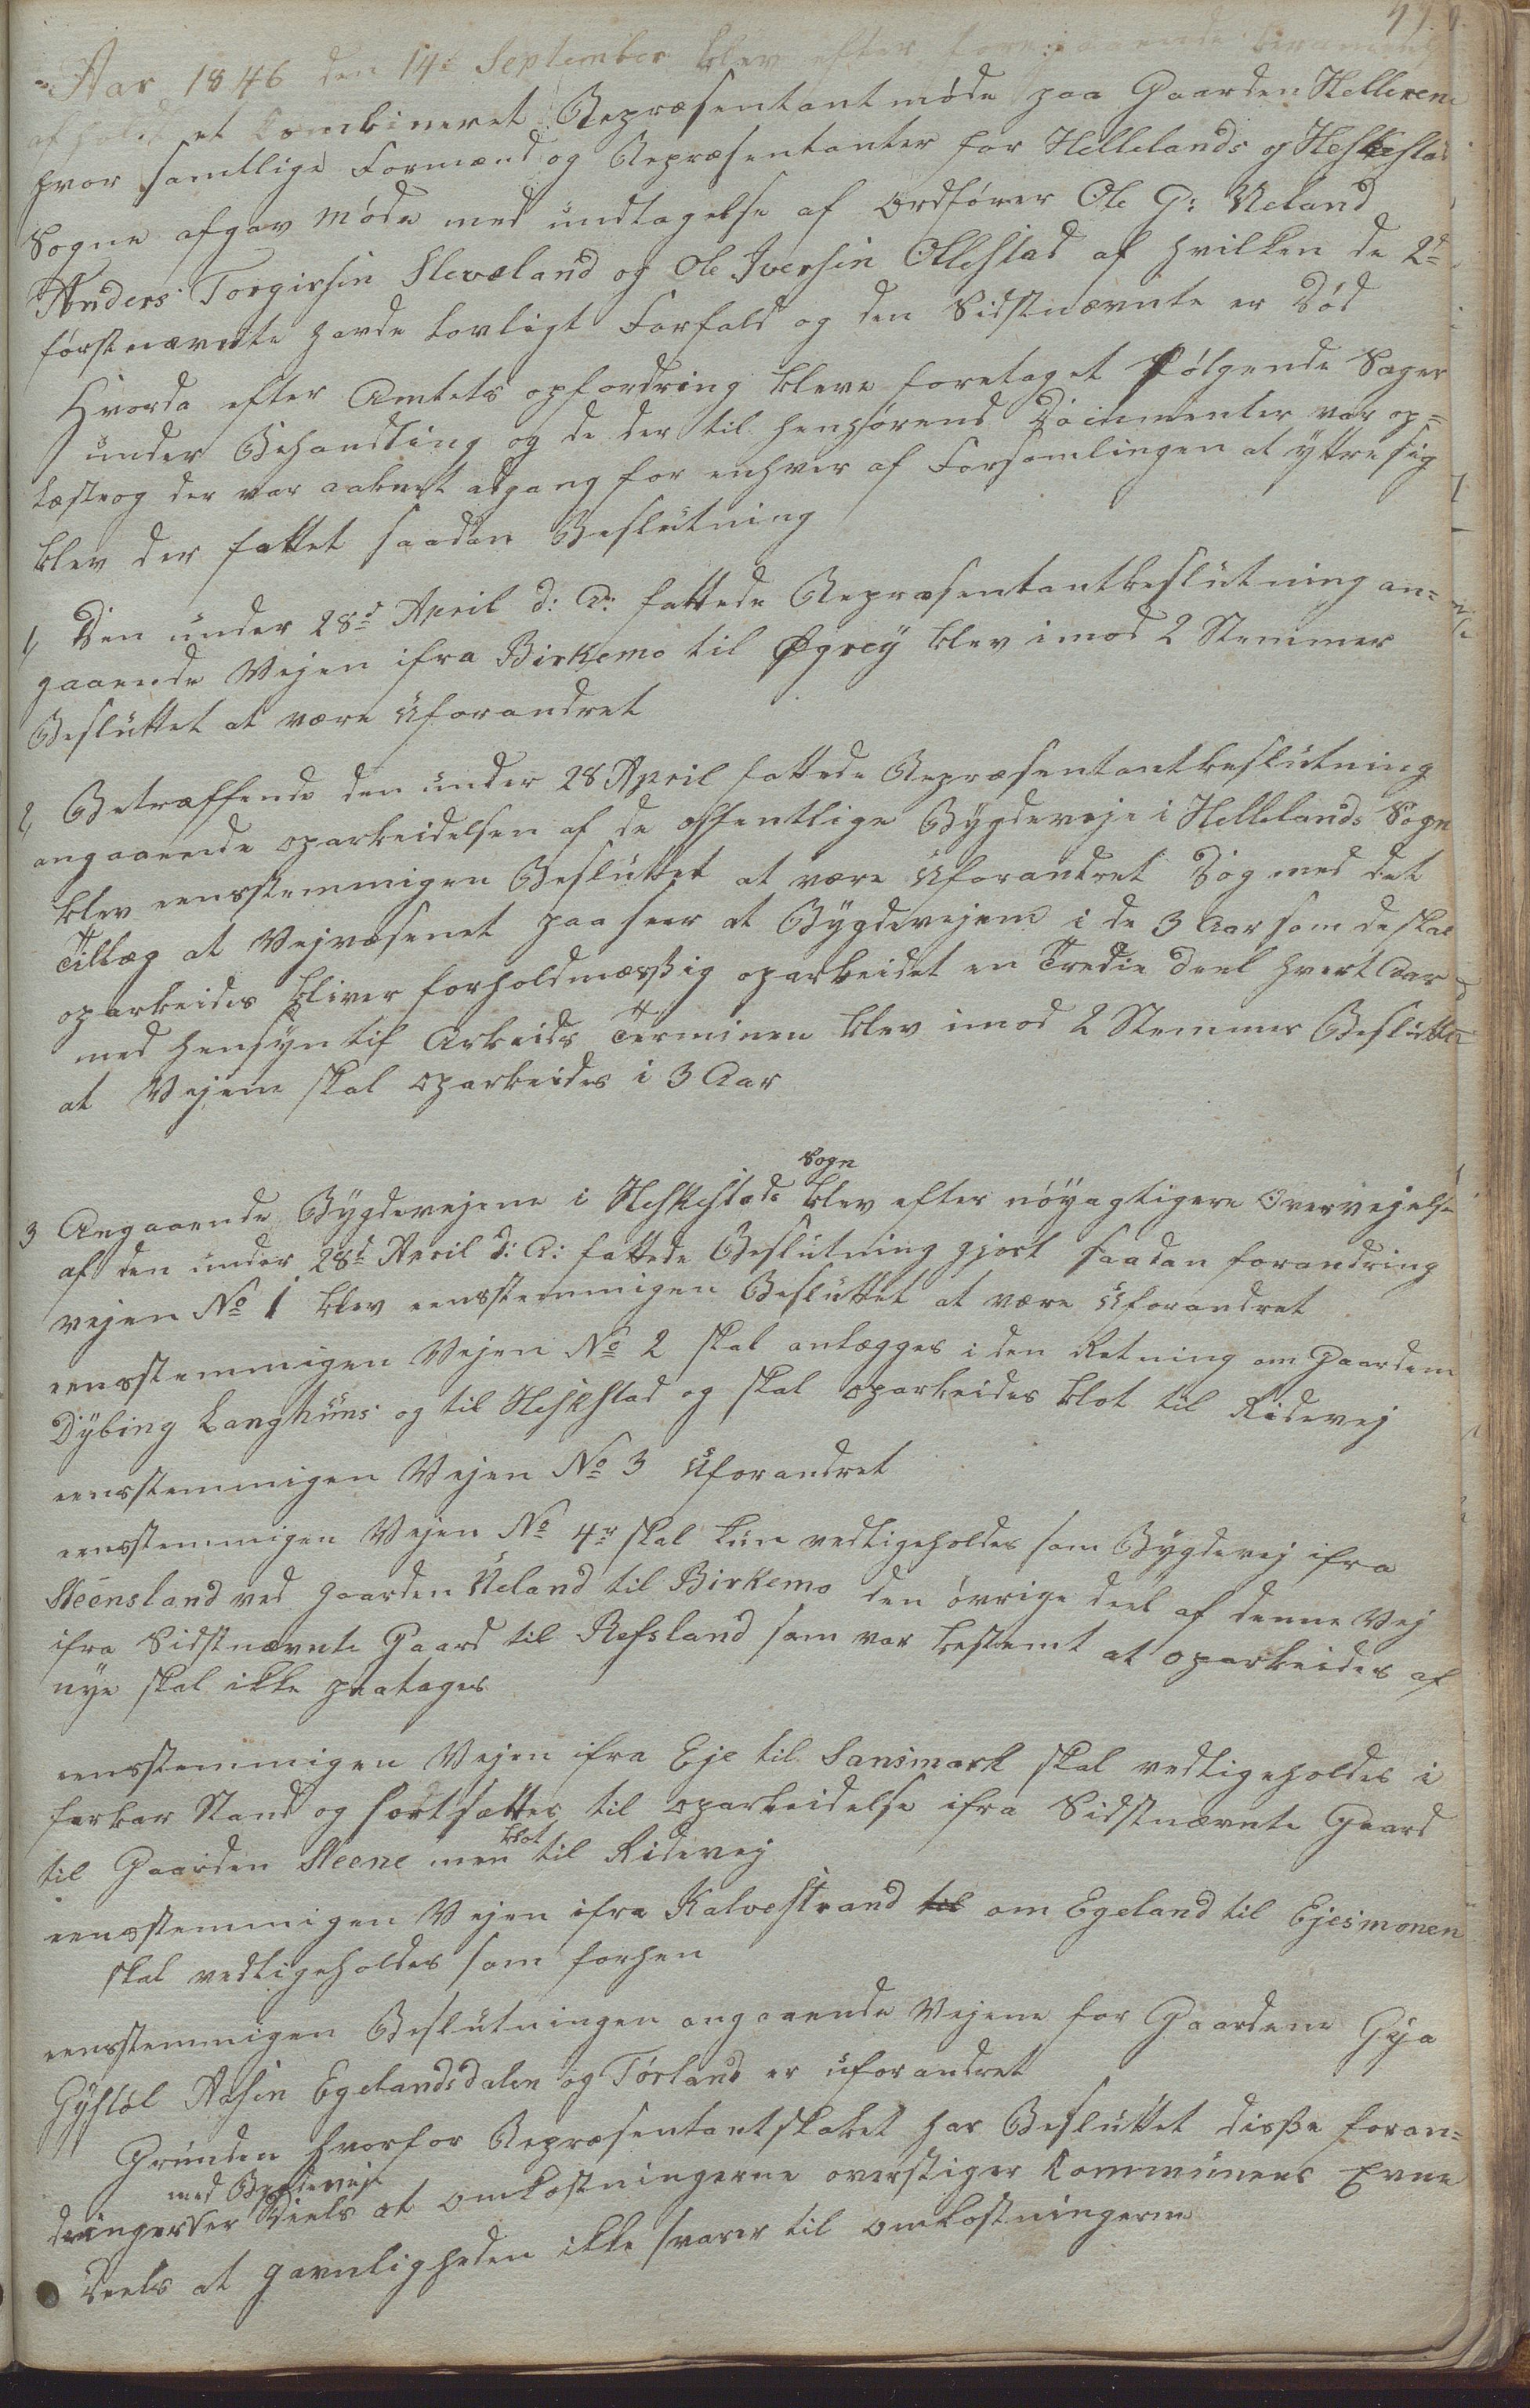 Aar 1846 den 14de September blev efter foregaaende berammelse
afholdt et Combineret Repræsentantmøde paa Gaarden Hellerene
hvor samtlige Formænd og Repræsentanter for Hellelands og Heskestad
Sogne afgav Møde med undtagelse af Ordfører Ole G: Ueland
Anders Torgirsin Slevæland og Ole Iversin Ollestad af hvilken de 2de
førstnævnte havde Lovligt Forfald og den Sidstnævnte er Død
Hvorda efter Amtets opfordring bleve foretaget følgende Sager
under Behandling og de der til henhørend Documenter var op=
læste og der var aabnet adgang for enhver af Forsamlingen at yttre sig
blev der fattet saadan Beslutning
1, Den under 28d April d: A: fattede Repræsentantbeslutning an=
gaaende Vejen ifra Birkemo til Øgrey blev imod 2 Stemmer
Besluttet at være uforandret
2, Betræffende den under 28 April fattede Repræsentantbeslutning
angaaende oparbeidelsen af de offentlige Bygdeveje i Hellelands Sogn
blev eensstemmigen Besluttet at være uforandret Dog med det
Tillæg at Vejvæsenet paaseer at Bygdevejene i de 3 Aar som de skal
oparbeides bliver forholdmæssig oparbeidet en Tredie deel hvert Aar
med hensyn til Arbeids Terminen blev imod 2 Stemmer Besluttet
at Vejene skal oparbeides i 3 Aar
Sogn
3 Angaaende Bygdevejene i Heskestads blev efter nøyagtigere Overvejelse
af den under 28d April d: A: fattede Beslutning gjort saadan forandring
vejen No 1 blev eensstemmigen Besluttet at være uforandret
eensstemmigen Vejen No 2 skal anlægges i den Retning om Gaardene
Dybing Langhuus og til Heskstad og skal oparbeides blot til Ridevej
eensstemmigen Vejen No 3 uforandret
eensstemmigen Vejen No 4r skal kun vedligeholdes som Bygdevej ifra
Steensland ved gaarden Ueland til Birkemo den øvrige deel af denne Vej
ifra Sidstnævnte Gaard til Refsland som var bestemt at oparbeides af
nye skal ikke paatages
eensstemmigen Vejen ifra Eje til Sansmark skal vedligeholdes i
farbar Stand og fortsættes til oparbeidelse ifra Sidstnævnte Gaard
blot
til Gaarden Steene men til Ridevej
eensstemmigen Vejen ifra Kalvestrand til om Egeland til Ejesmonen
skal vedligeholdes som forhen
eensstemmigen Beslutningen angaaende Vejene for Gaardene Gya
Gystøl Aasin Egelandsdalen og Tørland er uforandret
Grunden hvorfor Repræsentantskabet har Besluttet disse foran=
med Bygdeveje
dringer er Deels at Omkostningerne overstiger Communens Evne
Deels at gavnligheden ikke svarer til Omkostningerne